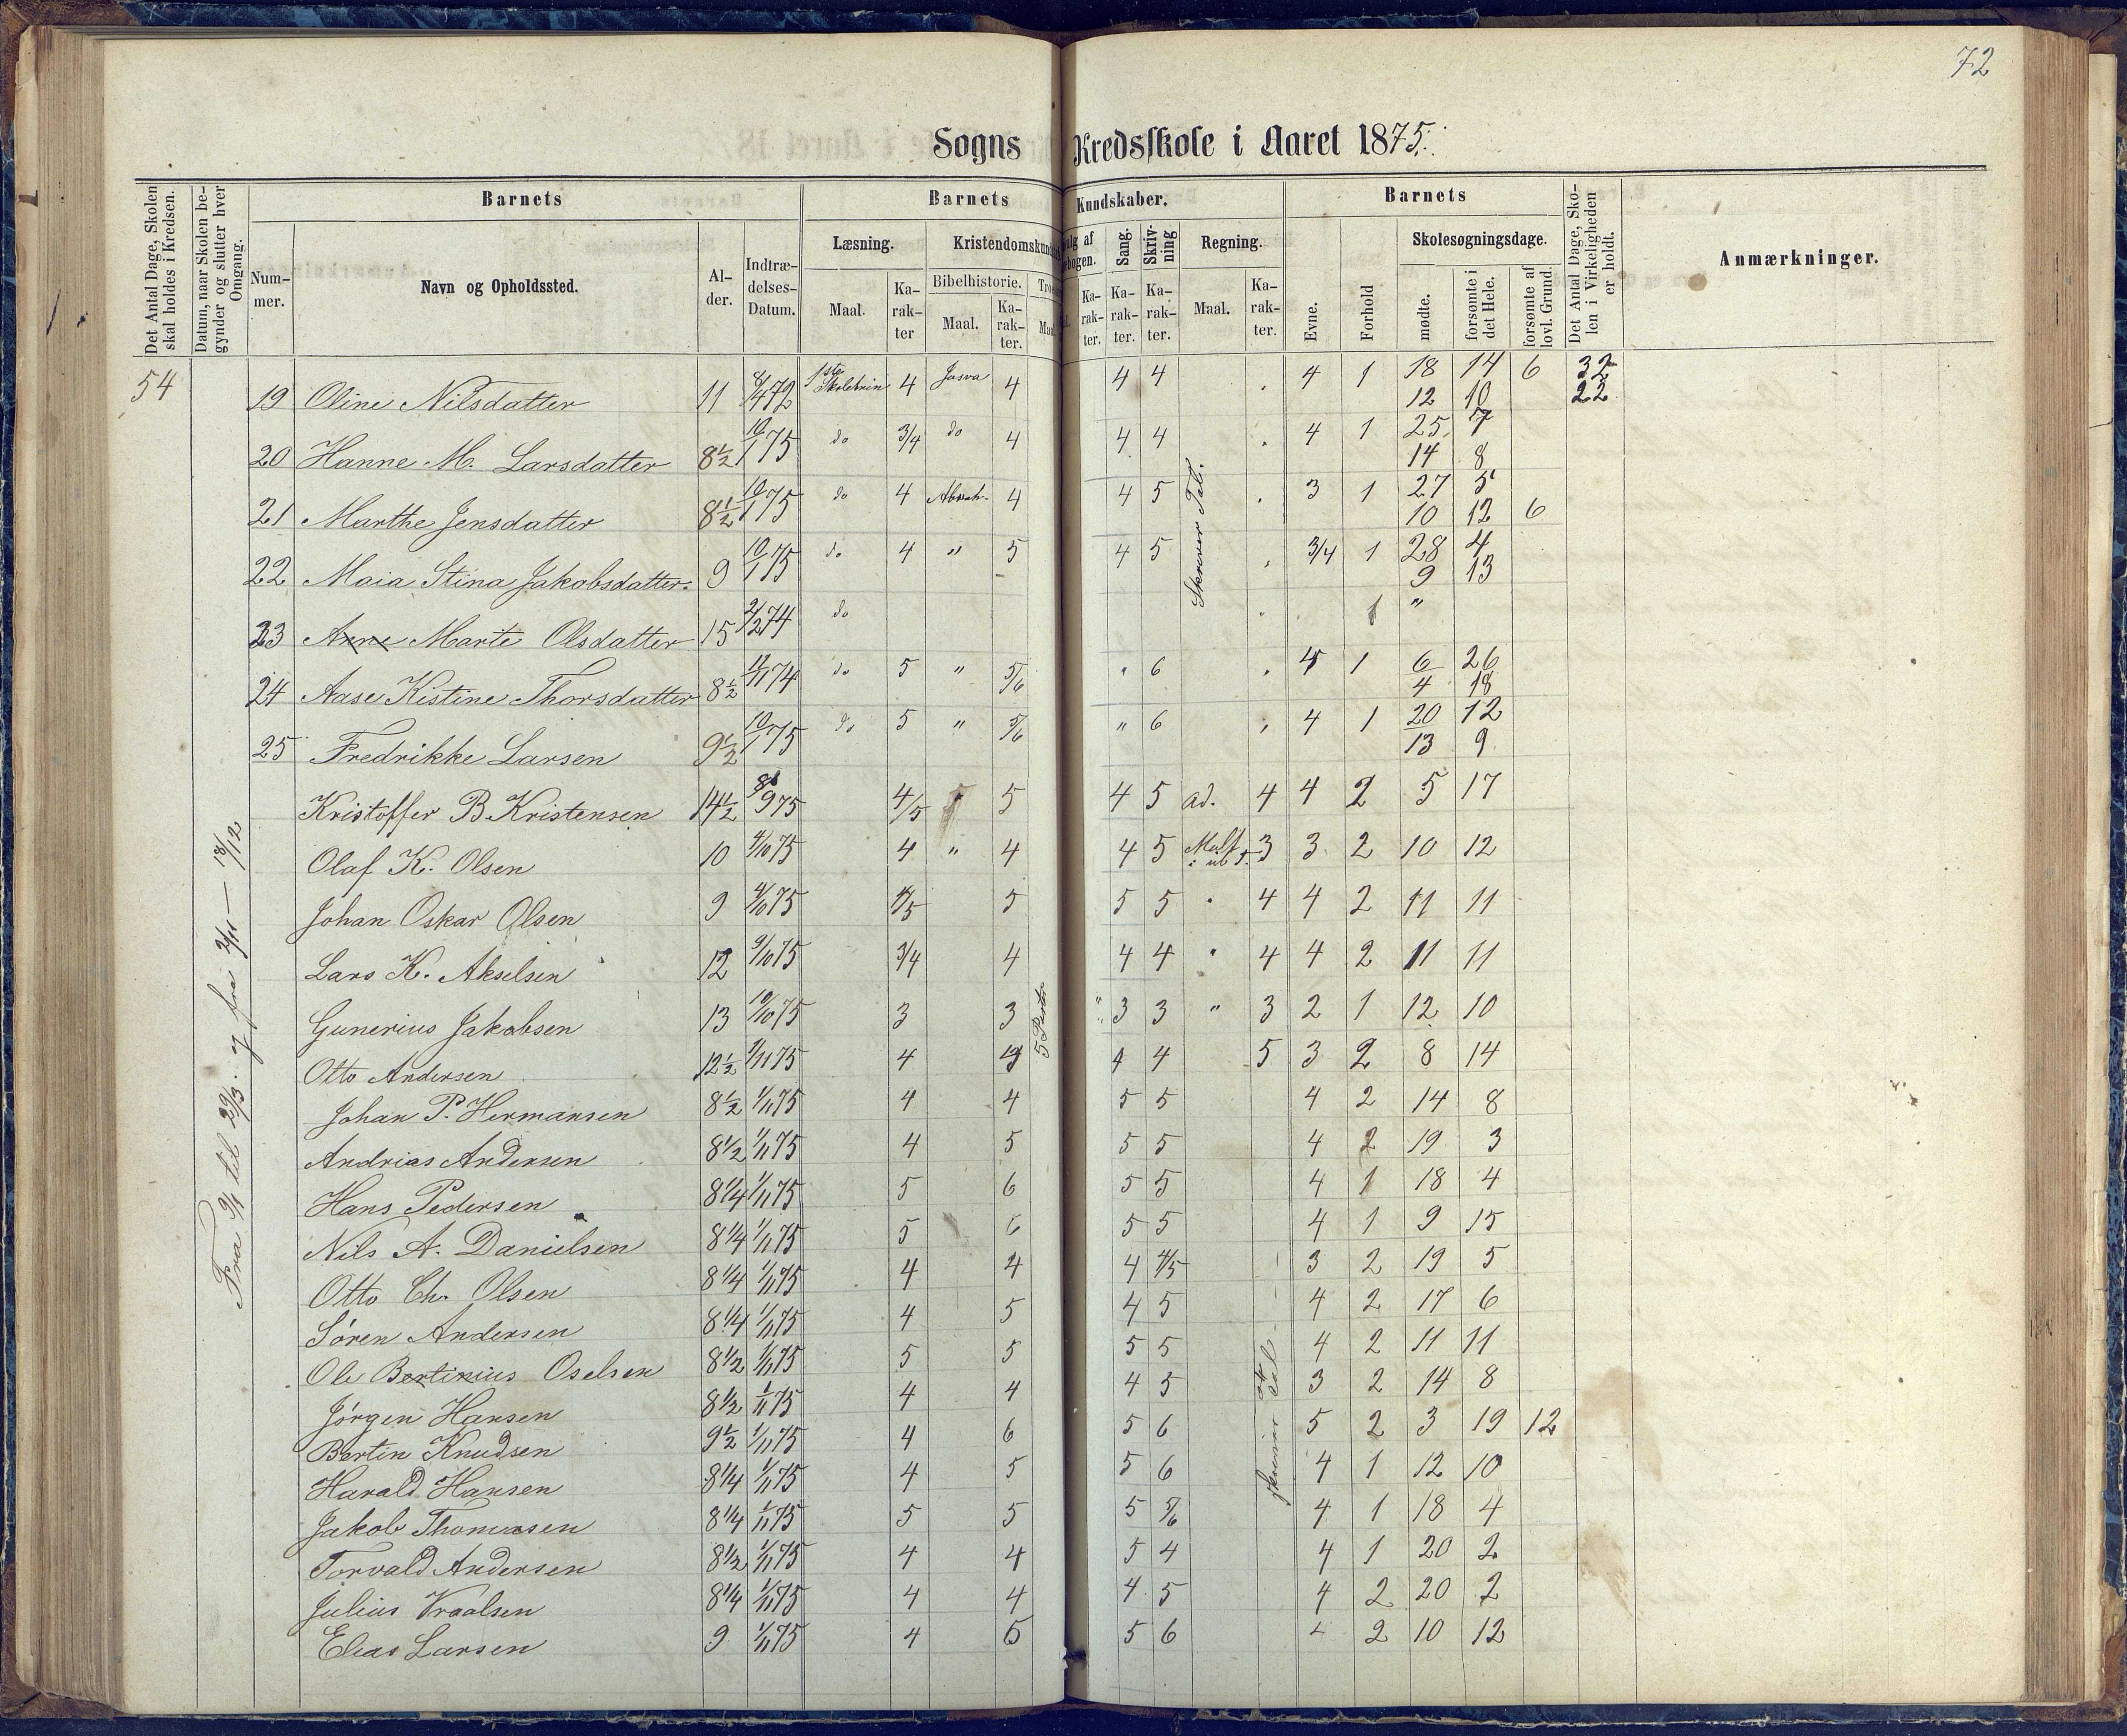 72
Sogns Kredsskole i Aaret 1875.
Det Antal Dage, Skolen skal holdes i Kredsen.
Datum, naar Skolen begynder og slutter hver Omgang.
Barnets
Barnets Kundskaber.
Barnets
Det Antal Dage, Skolen i Virkeligheden er holdt.
Anmærkninger.
Nummer.
Navn og Opholdssted.
Alder.
Indtrædelses-Datum.
Læsning.
Kristendomskundskab
Sang.
Skrivning
Regning.
Evne.
Forhold
Skolesøgningsdage.
Maal.
Karakter
Bibelhistorie.
Maal.
Karakter.
Karakter.
Karakter.
Karakter.
Maal.
Karakter.
mødte.
forsømte i det Hele.
forsømte af lovl. Grund.
54
Fra 9/1 til 29/3. og fra 2/11 — 18/12
Skriver Tal.
5 Parter
19 Oline Nilsdatter 11 8/4 72 1ste Skoletrin 4 Josva 4 4 4 4 1 18 14 6 32
12 10 22
20 Hanne M. Larsdatter 8½ 10/1 75 do 3/4 do 4 4 4 4 1 25 7
14 8
21 Marthe Jensdatter 8½ 10/1 75 do 4 Abrah. 4 4 5 3 1 27 5
10 12 6
22 Maia Stina Jakobsdatter. 9 10/1 75 do 4 " 5 4 5 3/4 1 28 4
9 13
23 Anne Marte Olsdatter 15 2/2 74 do 1 "
24 Aase Kistine Thorsdatter 8½ 11/11 74 do 5 " 5/6 " 6 4 1 6 26
4 18
25 Fredrikke Larsen 9½ 10/1 75 do 5 " 5/6 " 6 4 1 20 12
13 9
Kristoffer B. Kristensen 14½ 8/9 75 4/5 5 4 5 ad. 4 4 2 5 17
Olaf K. Olsen 10 4/10 75 4 " 4 4 5 3 3 2 10 12
Johan Oskar Olsen 9 4/10 75 4/5 5 5 5 " 4 4 2 11 11
Lars K. Akselsen 12 9/10 75 3/4 4 4 4 " 4 4 2 11 11
Gunerius Jakobsen 13 10/10 75 3 3 3 3 " 3 2 1 12 10
Otto Andersen 12½ 1/11 75 4 4 4 5 3 2 8 14
Johan P. Hermansen 8½ 1/11 75 4 4 5 5 4 2 14 8
Andrias Andersen 8½ 1/11 75 4 5 5 5 4 2 19 3
Hans Pedersen 8¼ 1/11 75 5 6 5 5 4 1 18 4
Nils A. Danielsen 8¼ 1/11 75 5 6 5 5 4 1 9 15
Otto Ch. Olsen 8¼ 1/11 75 4 4 4 4/5 3 2 19 5
Sören Andersen 8¼ 1/11 75 4 5 4 5 4 2 17 6
Ole Bertinius Oselsen 8½ 1/11 75 5 5 5 5 4 2 11 11
Jörgen Hansen 8½ 1/11 75 4 4 4 5 3 2 14 8
Bertin Knudsen 9½ 1/11 75 4 6 5 6 5 2 3 19 12
Harald Hansen 8¼ 1/11 75 4 5 5 6 4 1 12 10
Jakob Thomassen 8¼ 1/11 75 5 5 5 5/6 4 1 18 4
Torvald Andersen 8½ 1/11 75 4 4 5 4 4 1 20 2
Julius Vraalsen 8¼ 1/11 75 4 4 4 5 4 2 20 2
Elias Larsen 9 1/11 75 4 5 5 6 4 2 10 12